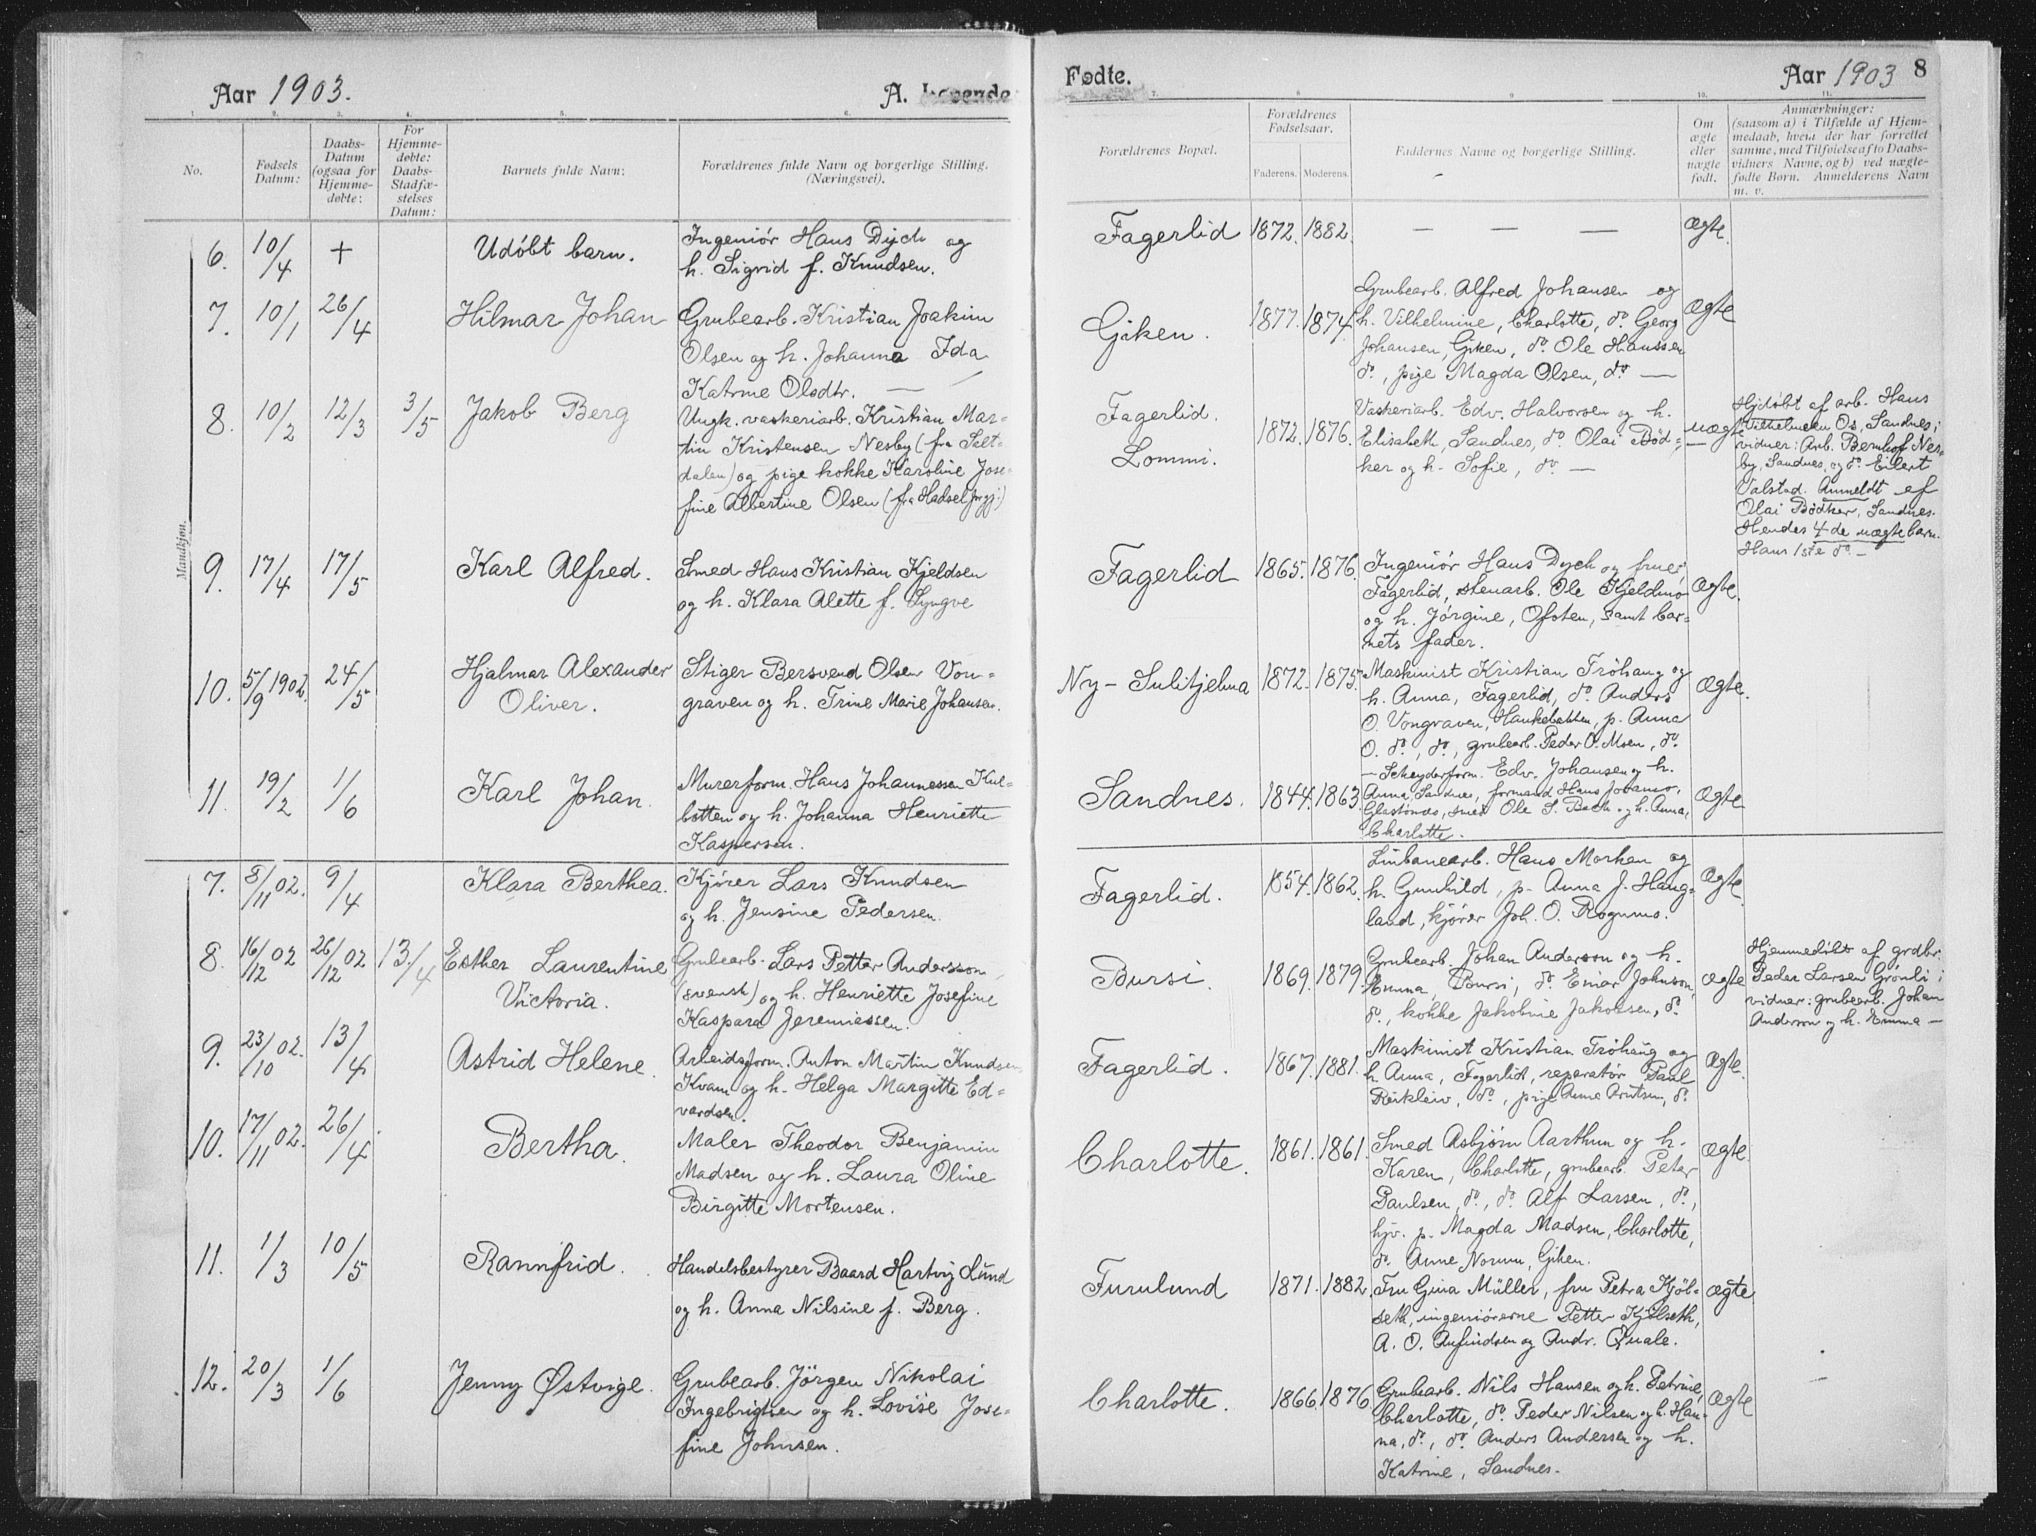 Aar 1903.
A. Levende
Fødte.
Aar 1903
8
1. 2. 3. 4. 5. 6.
7. 8 9 10. 11.
No.
Fødsels Datum:
Daabs-Datum (ogsaa for Hjemme-døbte:
For Hjemme-døbte: Daabs-Stadfæ-stelses Datum:
Barnets fulde Navn:
Forældrenes fulde Navn og borgerlige Stilling.
(Næringsvei).
Forældrenes Bopæl.
Forældrenes Fødselsaar.
Faderens. Moderens.
Faddernes Navne og borgerlige Stilling.
Om ægte eller uægte født.
Anmærkninger:
(saasom a) i Tilfælde af Hjem-
medaab, hvem der har forrettet
samme, med Tilføielse af to Daabs-
vidners Navne, og b) ved uægte-
fødte Børn. Anmelderens Navn
m. v.
Mandkjøn.
6. 10/4 + Udöbt barn.
Ingeniör Hans Dych og
h. Sigrid f. Knudsen.
Fagerlid 1872. 1882. — — — Ægte.
7. 10/1 26/4 Hilmar Johan
Grubearb. Kristian Joakim
Olsen og h. Johanna Ida
Katrine Olsdtr. —
Giken. 1877. 1874.
Grubearb. Alfred Johansen og
h. Vilhelmine, Charlotte, do. Georg
Johansen, Giken, do. Ole Hanssen
do., pige Magda Olsen, do. —
Ægte
8. 10/2 12/3 3/5 Jakob Berg
Ungk. vaskeriarb. Kristian Mar-
tin Kristensen Nesby (fra Salt-
dalen) og pige kokke Karoline Jose-
fine Albertine Olsen (fra Hadsel prgj.)
Fagerlid.
Lommi.
1872. 1876.
Vaskeriarb. Edv. Halvorsen og h.
Elisabeth, Sandnes, do. Olai Bød-
ker og h. Sofie, do. —
uægte
—
Hjdöbt af arb. Hans
Vilhelmsen Os, Sandnes;
vidner: Arb. Bernhof Nes-
by, Sandnes, og do. Eilert
Valstad. Anmeldt af
Olai Bødker, Sandnes.
Hendes 4-de uægte barn.
Hans 1ste do. —
9. 17/4 17/5 Karl Alfred.
Smed Hans Kristian Kjeldsen
og h. Klara Alette f. Lyngve
Fagerlid 1865. 1876.
Ingeniör Hans Dych og frue,
Fagerlid, stenarb. Ole Kjeldmo
og h. Jörgine, Ofoten, samt bar-
nets fader.
Ægte.
10. 5/9 1902. 24/5 Hjalmar Alexander
Oliver.
Stiger Bersvend Olsen Von-
graven og h. Trine Marie Johansen.
Ny-Sulitjelma 1872. 1875.
Maskinist Kristian Tröhaug og
h. Anna, Fagerlid, do. Anders
O. Vongraven, Hankebakken, p. Anna
O. do., do., grubearb. Peder O. Moen, do.
Ægte.
11. 19/2 1/6 Karl Johan.
Murerform. Hans Johannessen Kul-
botten og h. Johanna Henriette
Kaspersen.
Sandnes. 1844. 1863.
— Scheyderform. Edv. Johansen og h.
Anna, Sandnes, formand Hans Johans.
Glastunæs, smed Ole S. Bech og h. Anna,
Charlotte.
Ægte
7. 8/11 02. 9/4 Klara Berthea.
Kjører Lars Knudsen
og h. Jensine Pedersen.
Fagerlid. 1854. 1862.
Linbanearb. Hans Morken og
h. Gunhild, p. Anna J. Haug-
land, kjører Joh. O. Rognmo.
Ægte.
8. 16/12 02 26/12 02 13/4 Esther Laurentine
Victoria.
Grubearb. Lars Petter Andersson
(svensk) og h. Henriette Josefine
Kaspara Jeremiessen.
Bursi. 1869. 1879.
Grubearb. Johan Anderson og h.
Emma, Bursi, do. Einar Johnson,
do., kokke Jakobine Jakobsen, do.
Ægte
Hjemmedöbt af grdbr.
Peder Larsen Grönli;
vidner: grubearb. Johan
Anderson og h. Emma —
9. 23/10 02. 13/4 Astrid Helene.
Arbeidsform. Anton Martin Knudsen
Kvam og h. Helga Margitte Ed-
vardsen.
Fagerlid. 1867. 1881.
Maskinist Kristian Tröhaug og
h. Anna, Fagerlid, reparatør Paul
Reiklein, do., pige Anne Arntsen, do.
Ægte.
10. 17/11 02. 26/4 Bertha.
Maler Theodor Benjamin
Madsen og h. Laura Oline
Birgitte Mortensen.
Charlotte. 1861. 1861.
Smed Asbjörn Aarthun og h.
Karen, Charlotte, grubearb. Peter
Paulsen, do., do. Alf Larsen, do.,
hjv. p. Magda Madsen, Charlotte,
do. Anne Norum, Giken.
Ægte.
11. 1/3 10/5 Rannfrid.
Handelsbestyrer Baard Hartvig Lund
og h. Anna Nilsine f. Berg.
Furulund 1871. 1882.
Fru Gina Müller, fru Petra Kjöl-
seth, ingeniörerne Petter Kjölseth,
A. O. Anfindsen og Andr. Quale.
Ægte
12. 20/3 1/6 Jenny Østvige.
Grubearb. Jörgen Nikolai
Ingebrigtsen og h. Lovise Jose-
fine Johnsen.
Charlotte. 1866. 1876.
Grubearb. Nils Hansen og h. Petrine,
Charlotte, do. Peder Nilsen og h. Han-
na, do., do. Anders Andersen og h.
Katrine, Sandnes.
Ægte